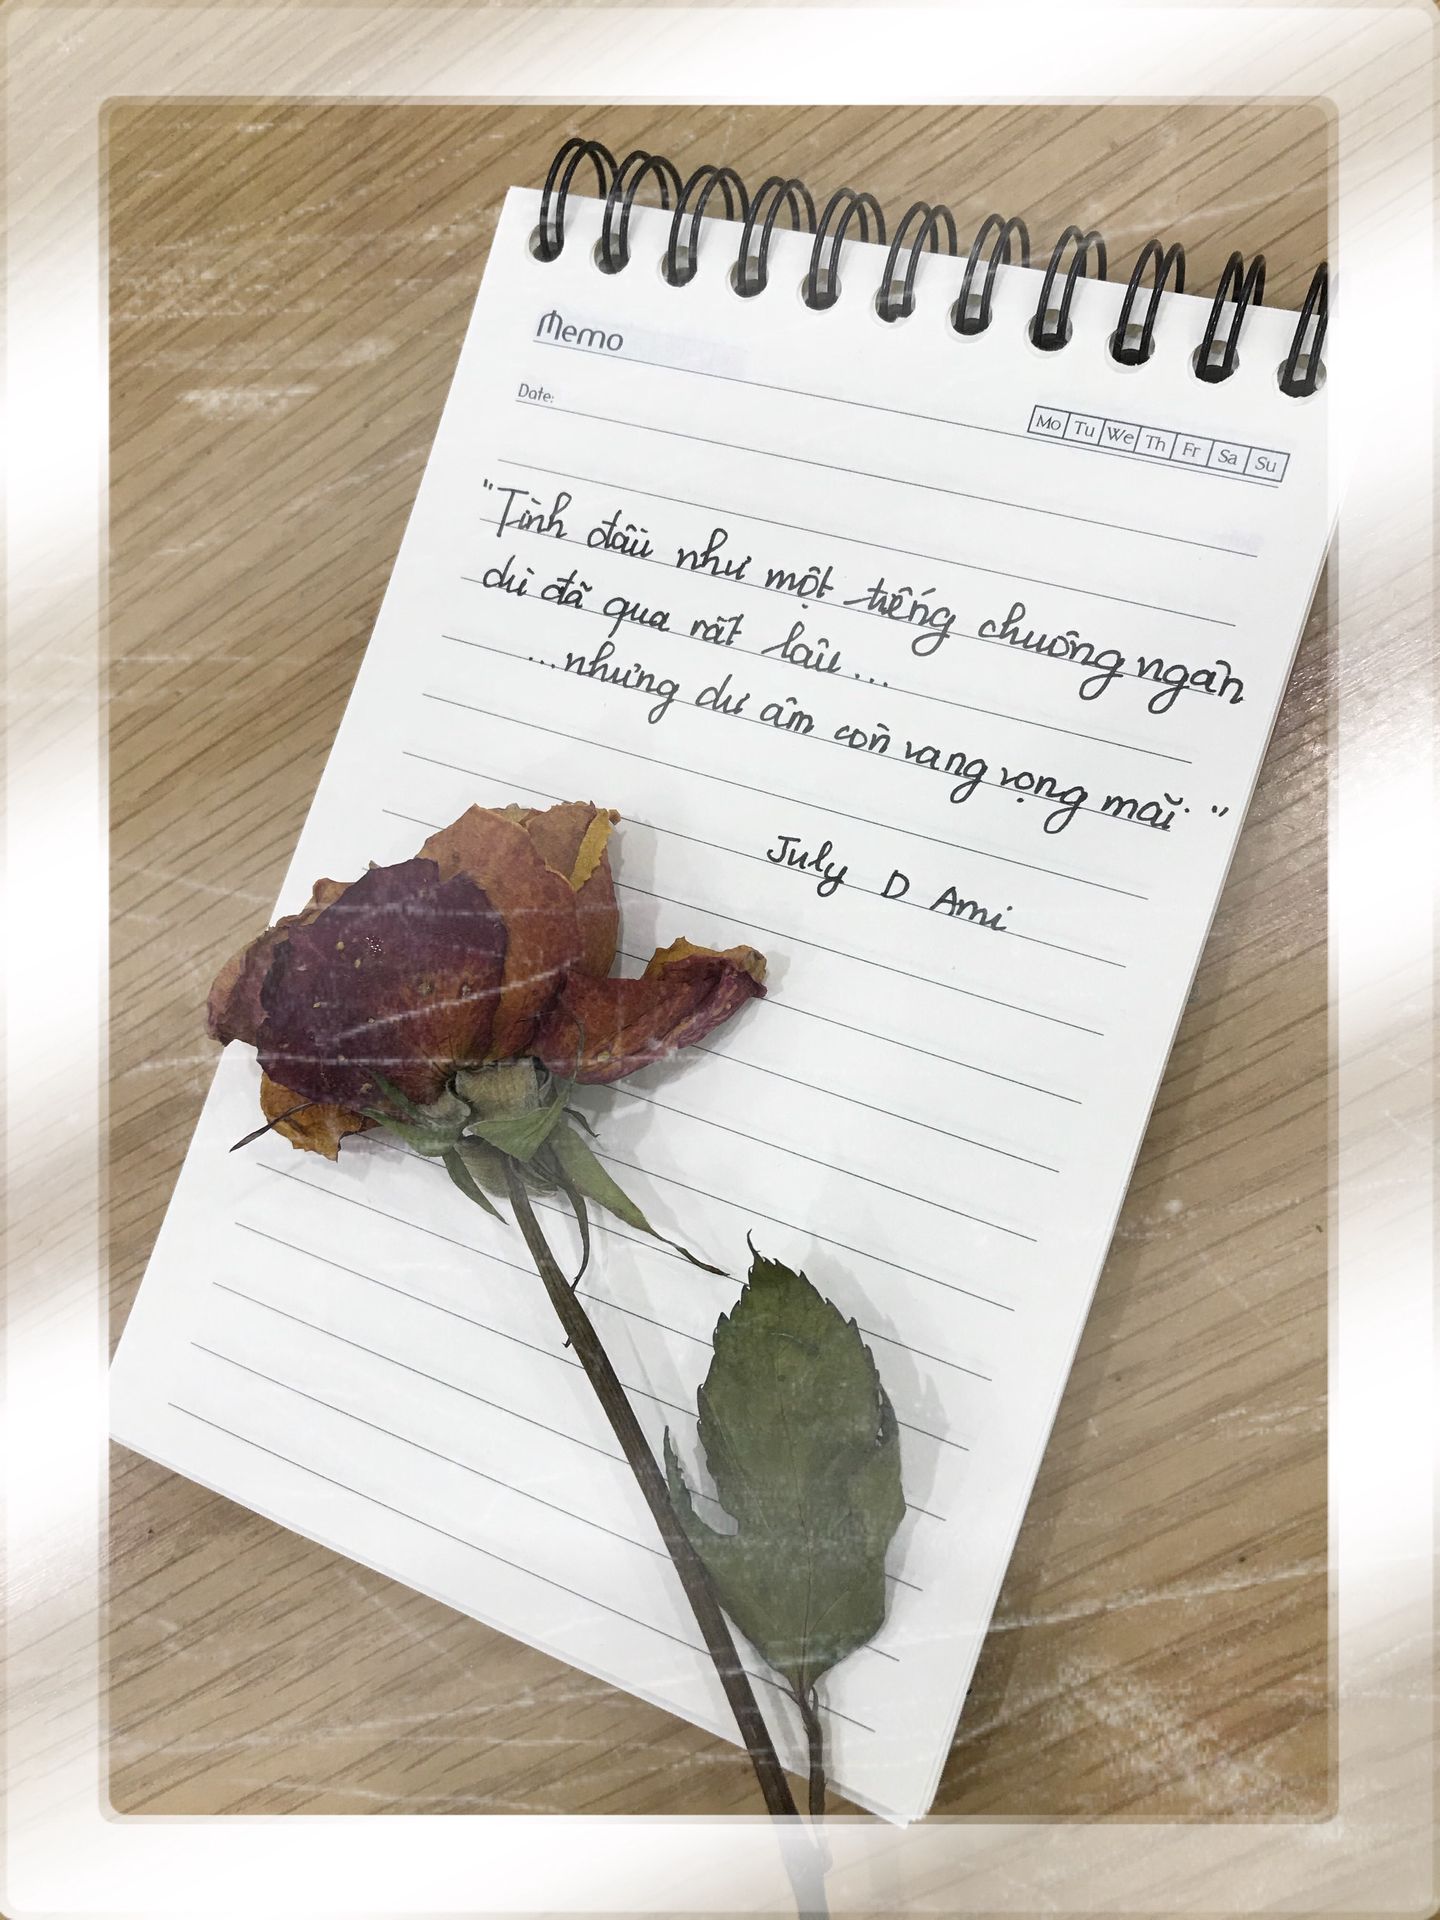 Memo
Date:
Mo Tu We Th Fr Sa Su
"Tình đầu như một tiếng chuông ngân
dù đã qua rất lâu...
...nhưng dư âm còn vang vọng mãi."
July D Ami